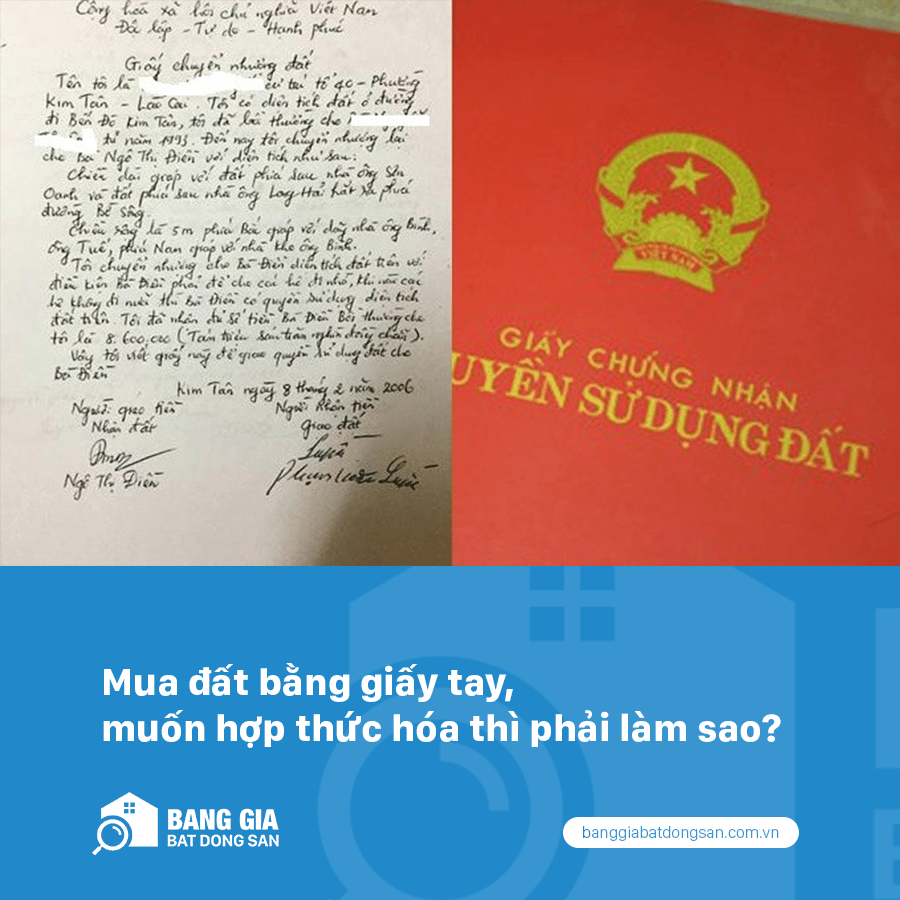 Cộng hoà xã hội chủ nghĩa Việt Nam
Độc lập - Tự do - Hạnh phúc
Giấy chuyển nhường đất
Tên tôi là cư trú tổ 40 - Phường
Kim Tân - Lào Cai. Tôi có diện tích đất ở đường
đi Bến Đò Kim Tân, tôi đã bồi thường cho
từ năm 1993. Đến nay tôi chuyển nhường lại
cho Bà Ngô Thị Điền với diện tích như sau:
Chiều dài giáp với đất phía sau nhà ông Sơn
Oanh và đất phía sau nhà ông Long Hải phía
đường Bờ sông.
Chiều rộng là 5m phía Bắc giáp với nhà ông Bình,
ông Tuế, phía Nam giáp với nhà kho ông Bình.
Tôi chuyển nhường cho Bà Điền diện tích đất trên với
điều kiện Bà Điền phải để cho các hộ đi nhờ, khi nào các
hộ không đi nữa thì Bà Điền có quyền sử dụng diện tích
đất trên. Tôi đã nhận đủ số tiền Bà Điền Bồi thường cho
tôi là 8.600.000 (Tám triệu sáu trăm nghìn đồng chẵn).
Vậy tôi viết giấy này để giao quyền sử dụng đất cho
Bà Điền
Kim Tân ngày 8 tháng 2 năm 2006
Người giao tiền Người nhận tiền
Nhận đất giao đất
Ngô Thị Điền
VIỆT NAM
GIẤY CHỨNG NHẬN
UYỀN SỬ DỤNG ĐẤT
Mua đất bằng giấy tay,
muốn hợp thức hóa thì phải làm sao?
BANG GIA
BAT DONG SAN
banggiabatdongsan.com.vn